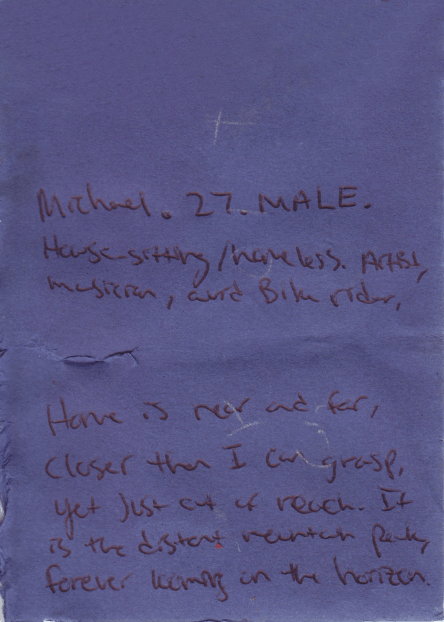 Michael. 27. MALE.
House-sitting/homeless. Artist,
musician, and Bike rider,
Home is near and far,
closer than I can grasp,
yet just out of reach. It
is the distant mountain peak,
forever looming on the horizon.